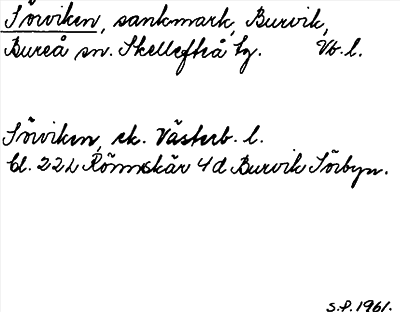 Sörviken, sankmark, Burvik,
Bureå sn. Skellefteå tg. Vb. l.
Sörviken, ek. Västerb. l.
bl. 22 L Rönnskär 4 d Burvik Sörbyn.
S.P. 1961.